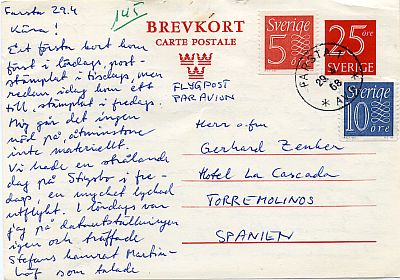 Farsta 29.4
145
Kära!
Ditt första kort kom
först i lördags, post-
stämplat i tisdags, men
redan idag kom ett
till, stämplat i fredags.
Mig går det ingen
nöd på, åtminstone
inte materiellt.
Vi hade en strålande
dag på Stegsbo i fre-
dags, en mycket lyckad
utflykt. I lördags var
jag på datautställningen
igen och träffade
Stefans kamrat Martin-
som talade
BREVKORT
CARTE POSTALE
FLYGPOST
PAR AVION
Sverige
5 öre
25 öre
SVERIGE
FARSTA 1
29.4.68
Sverige
10 öre
Herr o fru
Gerhard Zenker
Hotel La Cascada
TORREMOLINOS
SPANIEN